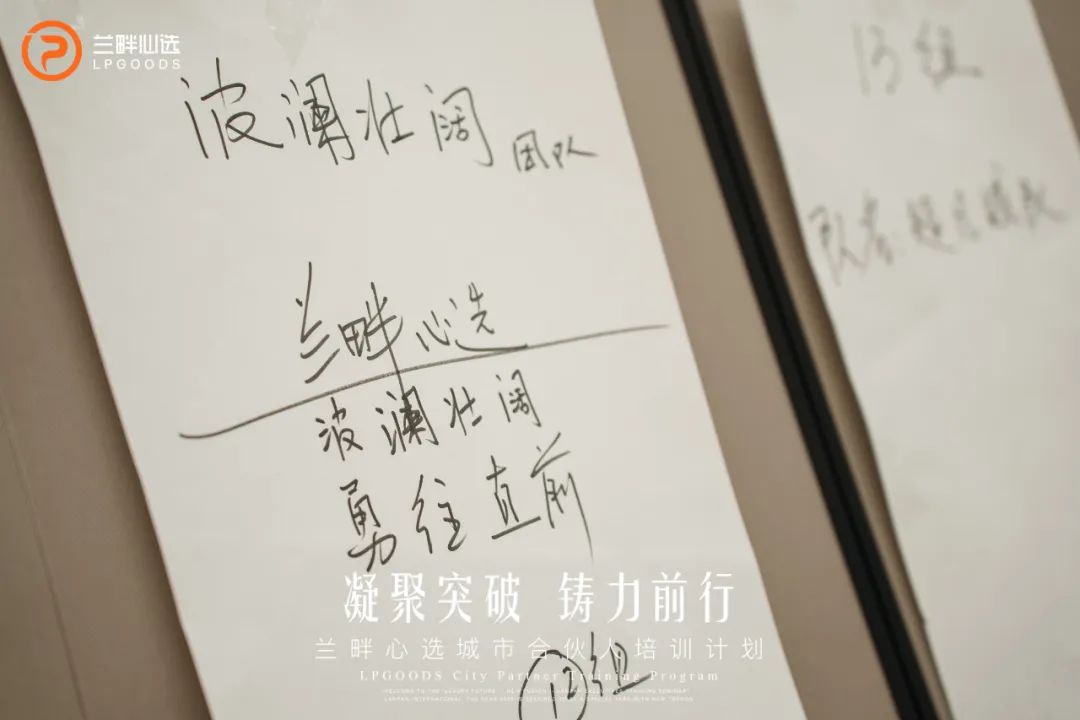 兰畔心选
LPGOODS
波澜壮阔 团队
兰畔心选
波澜壮阔
勇往直前
13组
凝聚突破 铸力前行
兰畔心选城市合伙人培训计划
LPGOODS City Partner Training Program
组